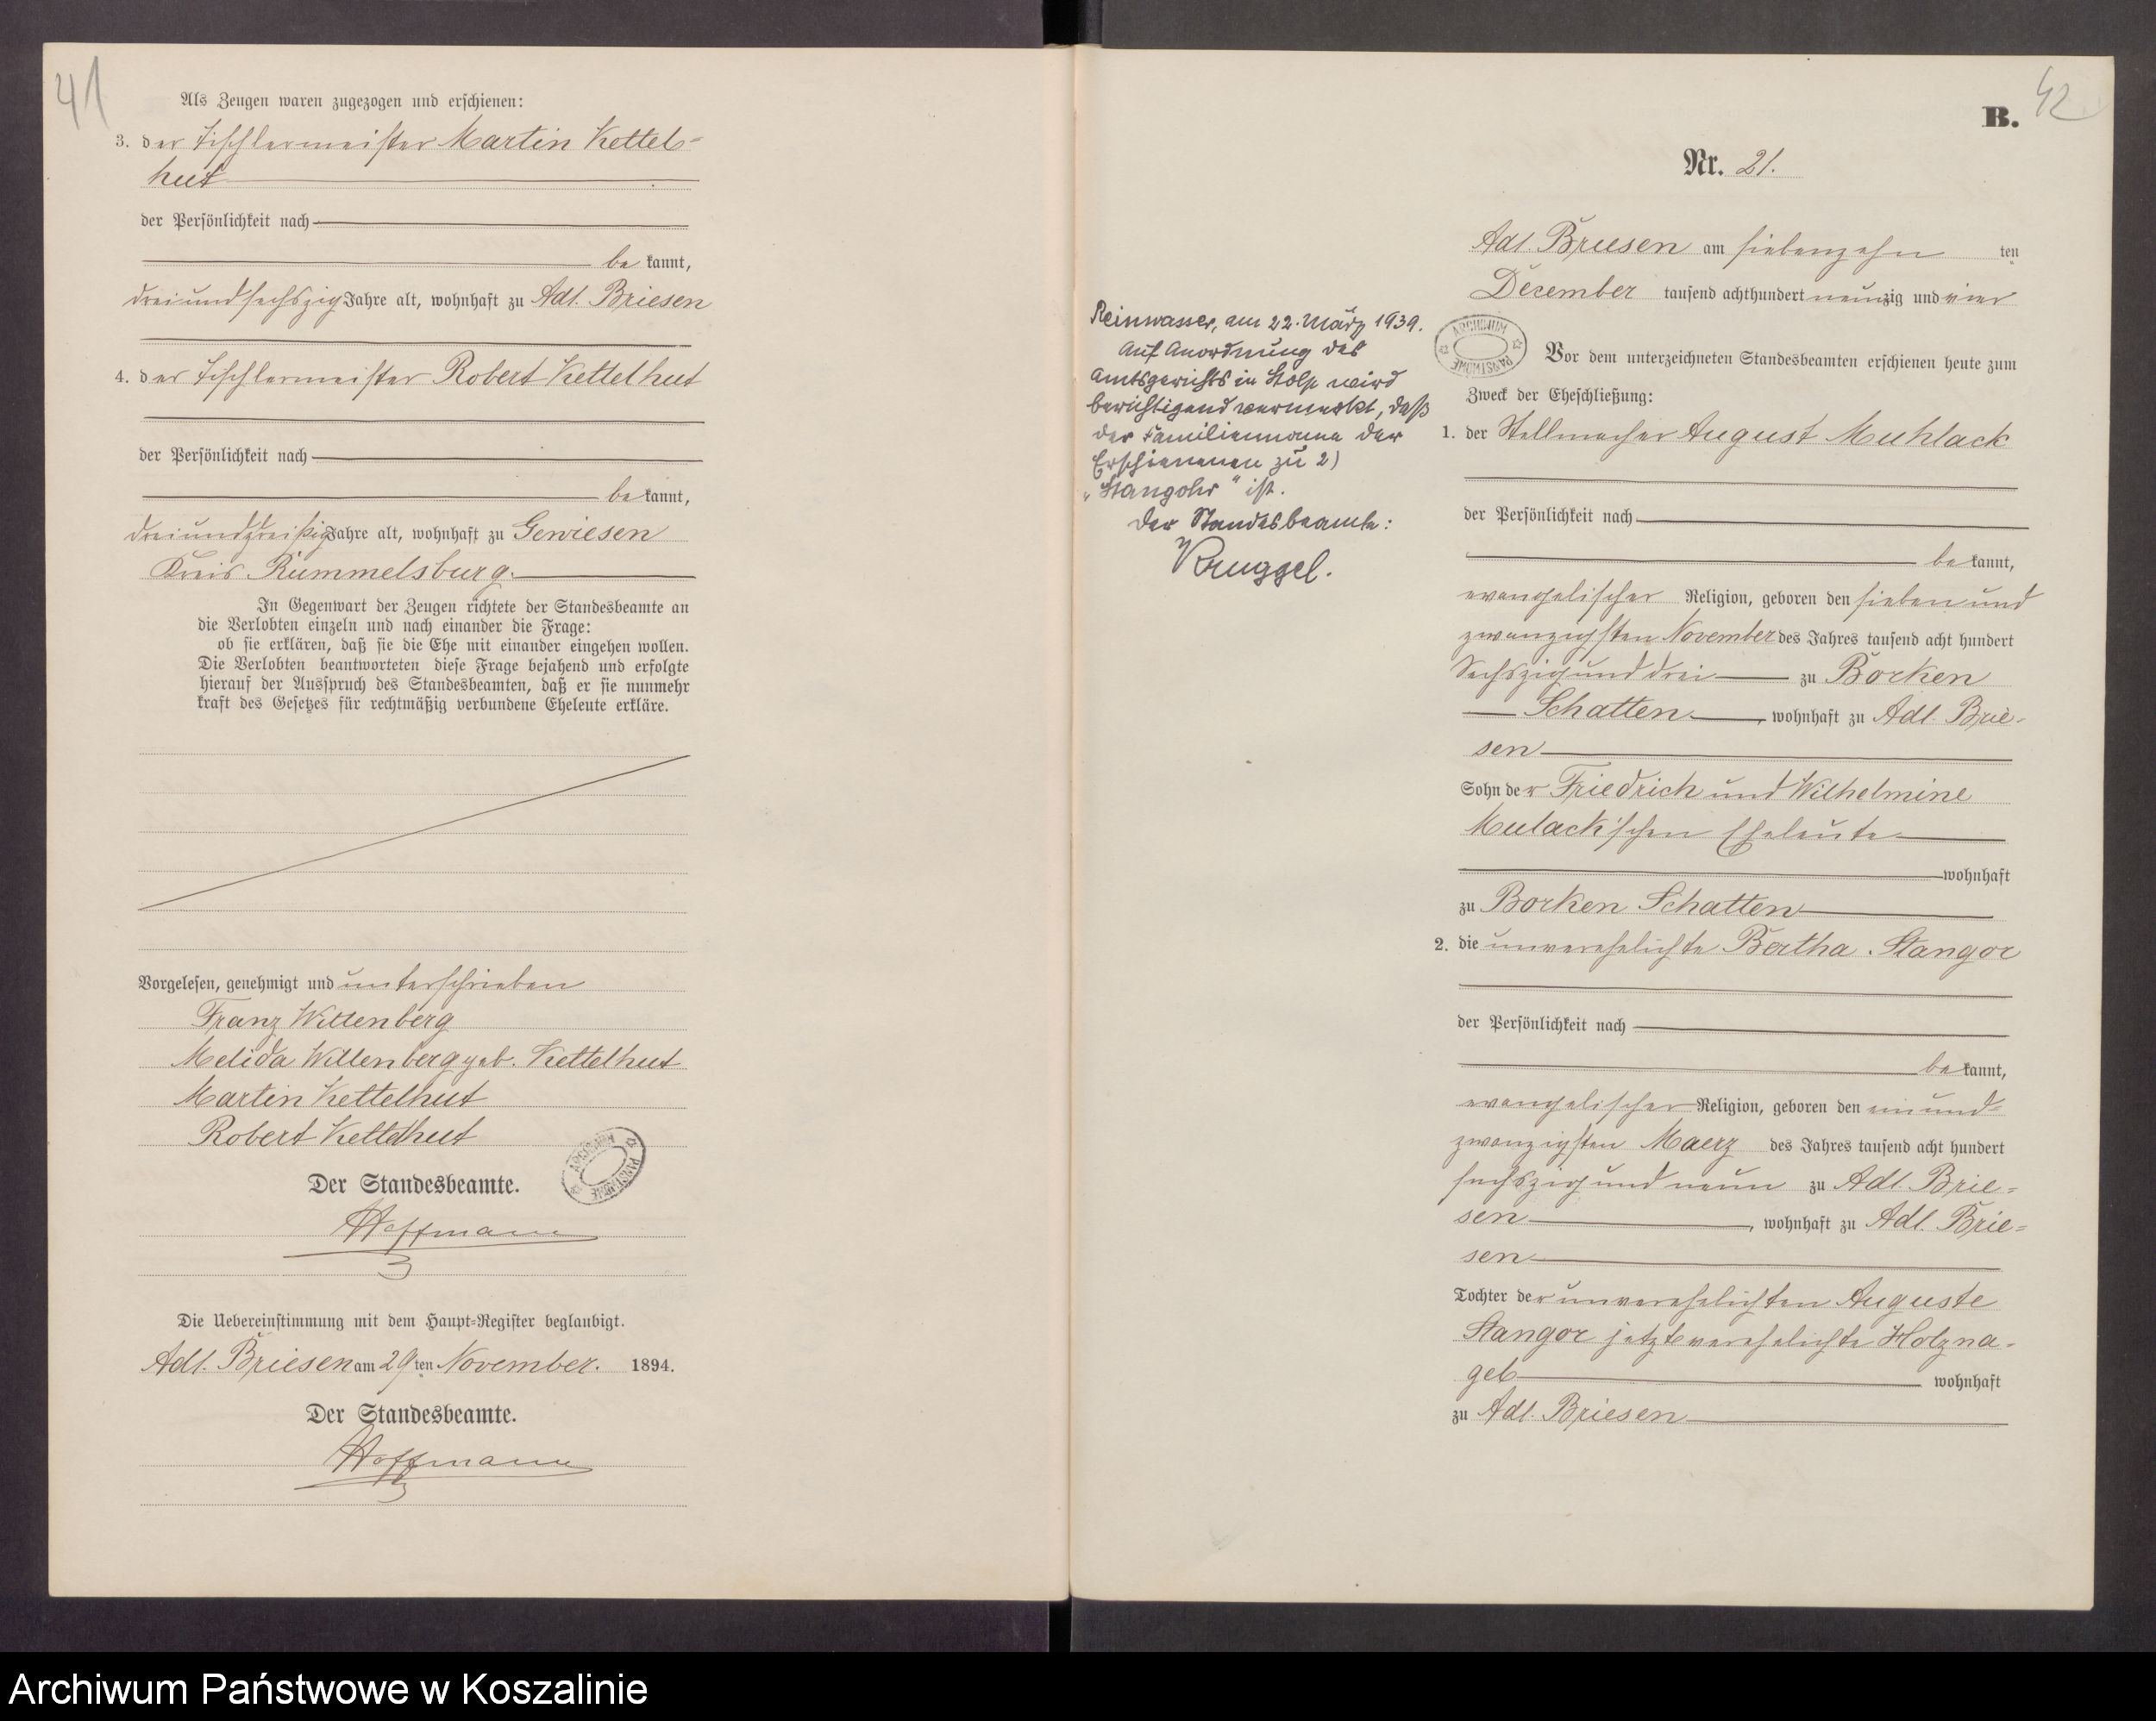 41
Als Zeugen waren zugezogen und erschienen:
3. der Tischlermeister Martin Kettel=
hut
der Persönlichkeit nach
be kannt,
dreiundsechszig Jahre alt, wohnhaft zu Adl. Briesen
4. der Tischlermeister Robert Kettelhut
der Persönlichkeit nach
be kannt,
dreiunddreißig Jahre alt, wohnhaft zu Gewiesen
Kreis Rummelsburg.
In Gegenwart der Zeugen richtete der Standesbeamte an
die Verlobten einzeln und nach einander die Frage:
ob sie erklären, daß sie die Ehe mit einander eingehen wollen.
Die Verlobten beantworteten diese Frage bejahend und erfolgte
hierauf der Ausspruch des Standesbeamten, daß er sie nunmehr
kraft des Gesetzes für rechtmäßig verbundene Eheleute erkläre.
Vorgelesen, genehmigt und unterschrieben
Franz Wittenberg
Melida Wittenberg geb. Kettelhut
Martin Kettelhut
Robert Kettelhut
Der Standesbeamte.
ARCHIWUM PAŃSTWOWE
Hoffmann
Die Uebereinstimmung mit dem Haupt=Register beglaubigt.
Adl. Briesen am 29ten November. 1894.
Der Standesbeamte.
Hoffmann
42
B.
Nr. 21.
Adl. Briesen am siebenzehn ten
Dezember tausend achthundert neunzig und vier
ARCHIWUM PAŃSTWOWE
Vor dem unterzeichneten Standesbeamten erschienen heute zum
Zweck der Eheschließung:
1. der Stellmacher August Muhlack
der Persönlichkeit nach
be kannt,
evangelischer Religion, geboren den sieben und
zwanzigsten November des Jahres tausend acht hundert
Sechszig und drei zu Borken
Schatten, wohnhaft zu Adl. Brie-
sen
Sohn der Friedrich und Wilhelmine
Mulack'schen Eheleute
wohnhaft
zu Borken Schatten
2. die unverehelichte Bertha Stangor
der Persönlichkeit nach
be kannt,
evangelischer Religion, geboren den ein und=
zwanzigsten Maerz des Jahres tausend acht hundert
sechszig und neun zu Adl. Brie=
sen, wohnhaft zu Adl. Brie=
sen
Tochter der unverehelichten Auguste
Stangor jetzt verehelichte Holzna-
gel wohnhaft
zu Adl. Briesen
Reinwasser, am 22. März 1939.
Auf Anordnung des
Amtsgerichts in Stolp wird
berichtigend vermerkt, daß
der Familienname der
Erschienenen zu 2)
„Stangohr" ist.
Der Standesbeamte:
Kruggel.
Archiwum Państwowe w Koszalinie